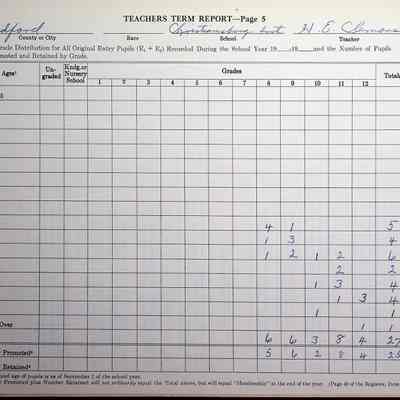 TEACHERS TERM REPORT—Page 5
Christiansburg Inst H. E. Clemons
County or City Race School Teacher
rade Distribution for All Original Entry Pupils (E₁ + E₂) Recorded During the School Year 19 -19 and the Number of Pupils
omoted and Retained by Grade.
Ages¹ Un-graded Kndg. or Nursery School Grades Total
1 2 3 4 5 6 7 8 9 10 11 12
4 1 5
1 3 4
1 2 1 2 6
2 2
1 3 4
1 3 4
1 1
Over 1 1
6 6 3 8 4 27
Promoted² 5 6 2 8 4 25
Retained²
ted age of pupils is as of September 1 of the school year.
Promoted plus Number Retained will not ordinarily equal the Total above, but will equal "Membership" at the end of the year. (Page 40 of the Register, Item